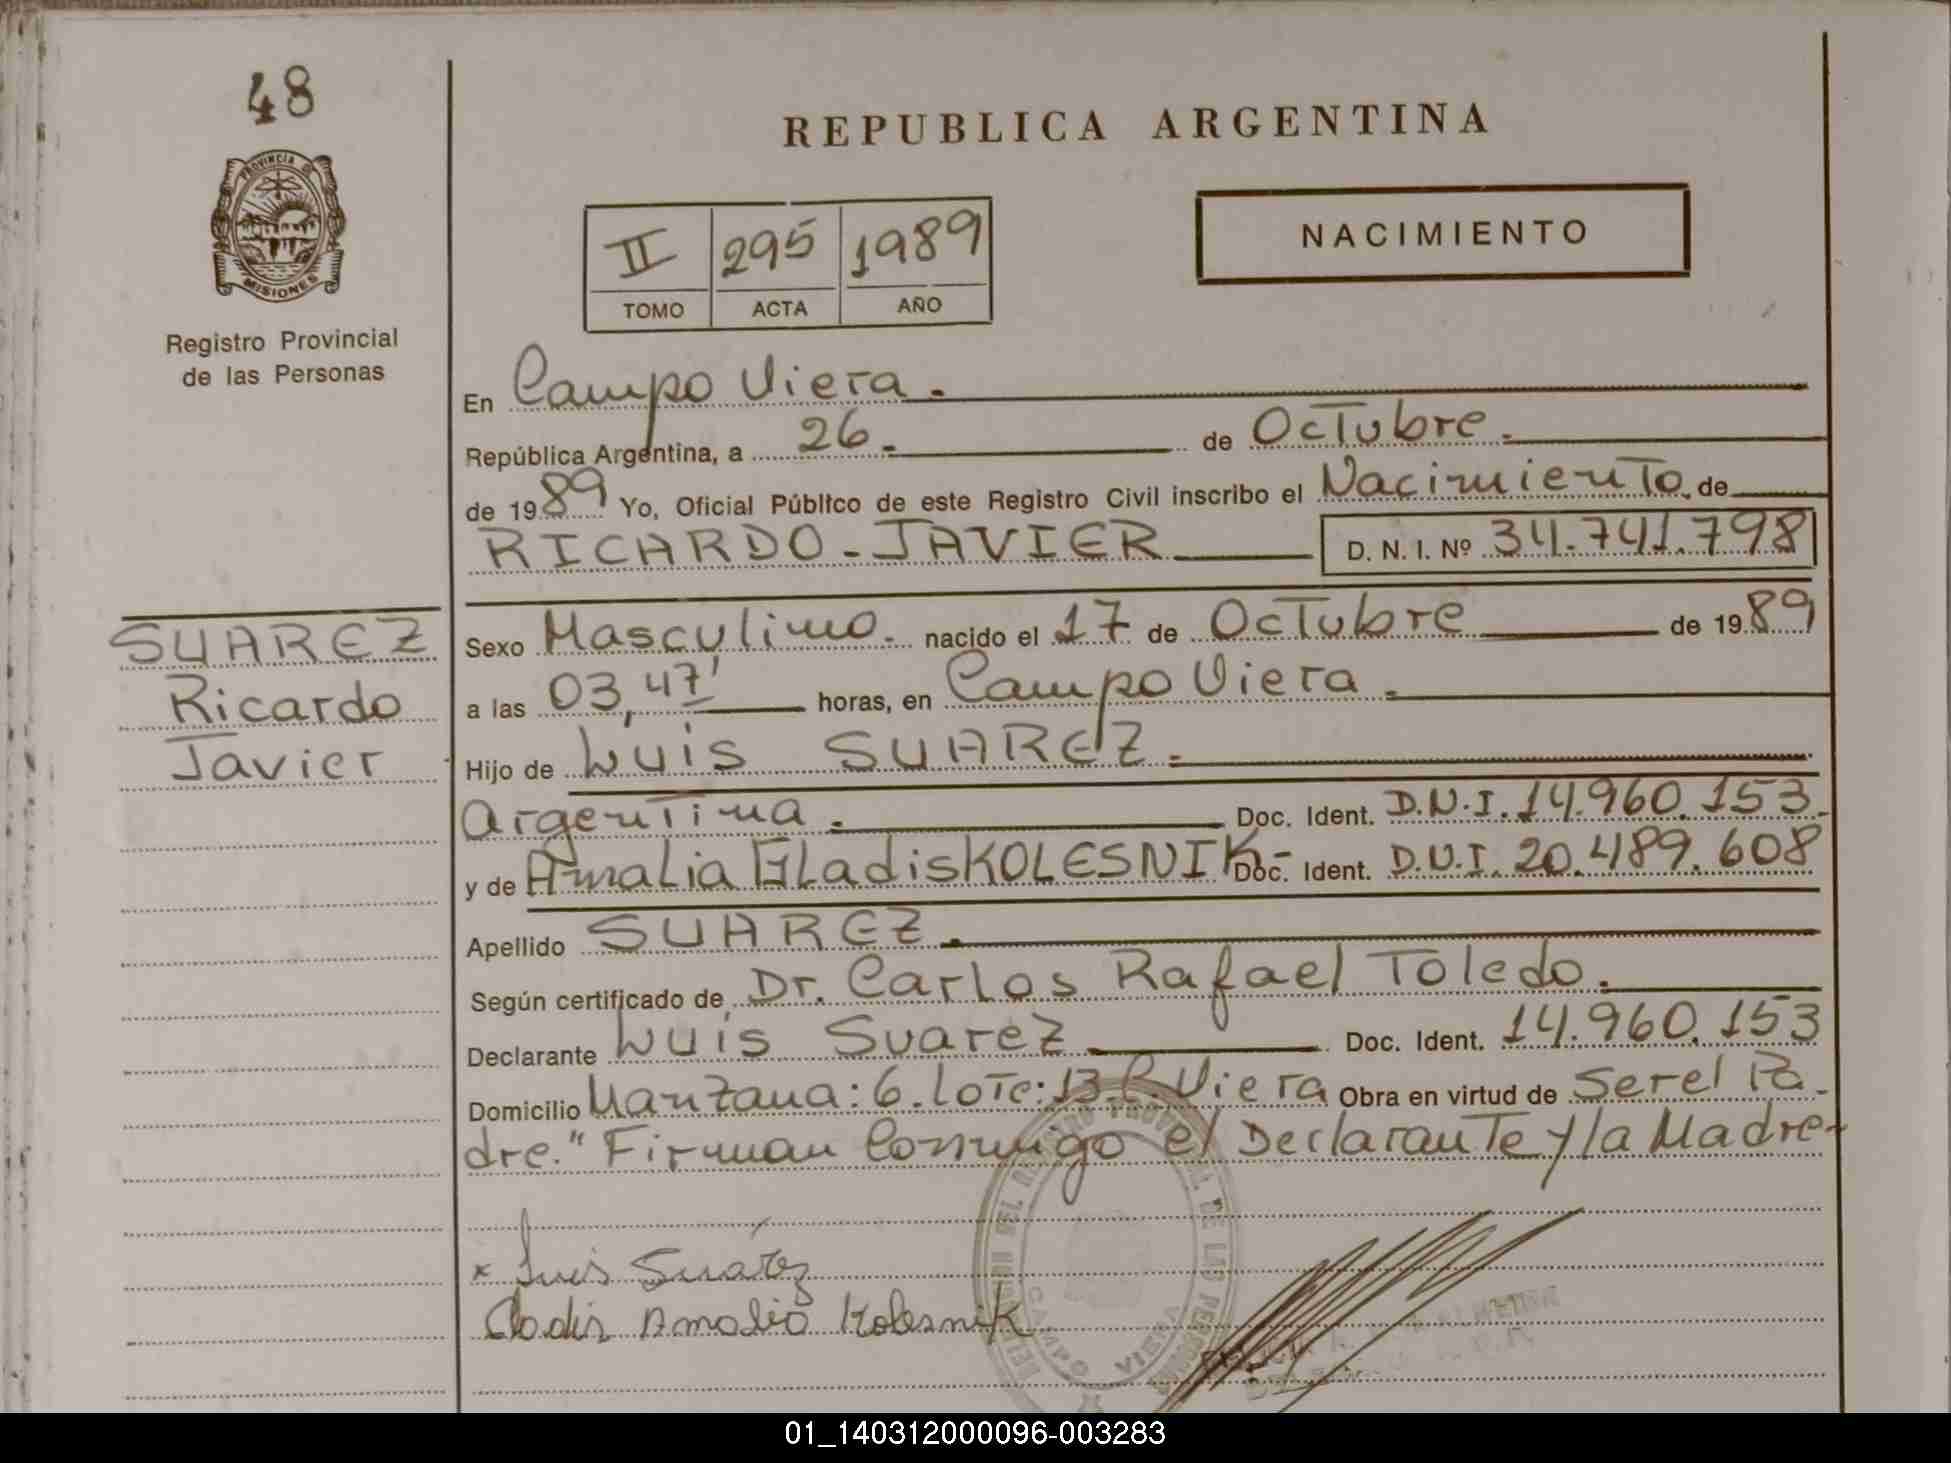 48
PROVINCIA DE
MISIONES
Registro Provincial
de las Personas
REPUBLICA ARGENTINA
II 295 1989
TOMO ACTA AÑO
NACIMIENTO
En Campo Viera.
República Argentina, a 26 de Octubre
de 1989 Yo, Oficial Público de este Registro Civil inscribo el Nacimiento de
RICARDO-JAVIER D. N. I. Nº 34.741.798
SUAREZ
Ricardo
Javier
Sexo Masculino. nacido el 17 de Octubre de 1989
a las 03,47' horas, en Campo Viera.
Hijo de Luis SUAREZ.
Argentina. Doc. Ident. D.N.I. 14.960.153
y de Amalia Gladis KOLESNIK- Doc. Ident. D.N.I. 20.489.608
Apellido SUAREZ.
Según certificado de Dr. Carlos Rafael Toledo.
Declarante Luis Suarez Doc. Ident. 14.960.153
Domicilio Manzana: 6. Lote: 13 C. Viera Obra en virtud de Ser el Pa-
dre." Firman Conmigo el Declarante y la Madre-
x Luis Suárez
Gladis Amalia Kolesnik
CAMPO VIERA
01_140312000096-003283